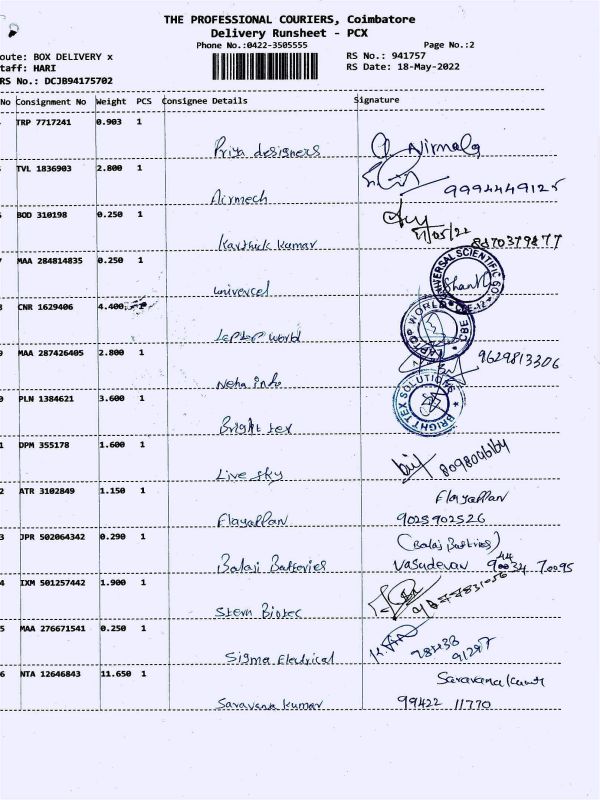 THE PROFESSIONAL COURIERS, Coimbatore
Delivery Runsheet - PCX
Phone No.:0422-3505555 Page No.:2
oute: BOX DELIVERY x RS No.: 941757
taff: HARI RS Date: 18-May-2022
RS No.: DCJB94175702
No Consignment No Weight PCS Consignee Details Signature
TRP 7717241 0.903 1
Priya designers Nirmala
TVL 1836903 2.800 1
Airmech 9994449125
BOD 310198 0.250 1
Karthick Kumar /05/22 8870379877
MAA 284814835 0.250 1
univercel UNIVERSAL SCIENTIFIC
CNR 1629406 4.400 1
LAPTOP WORLD CBE
MAA 287426405 2.800 1
Neha info 9629813306
PLN 1384621 3.600 1
Bright tex BRIGHT TEX SOLUTIONS
DPM 355178 1.600 1
Live sky
2 ATR 3102849 1.150 1
9025902526
3 JPR 502064342 0.290 1
Balaji Batteries Vasudevan
4 IXM 501257442 1.900 1
Stern Biotec
5 MAA 276671541 0.250 1
Sigma Electrical
6 NTA 12646843 11.650 1
Saravana Kumar 99422 11770